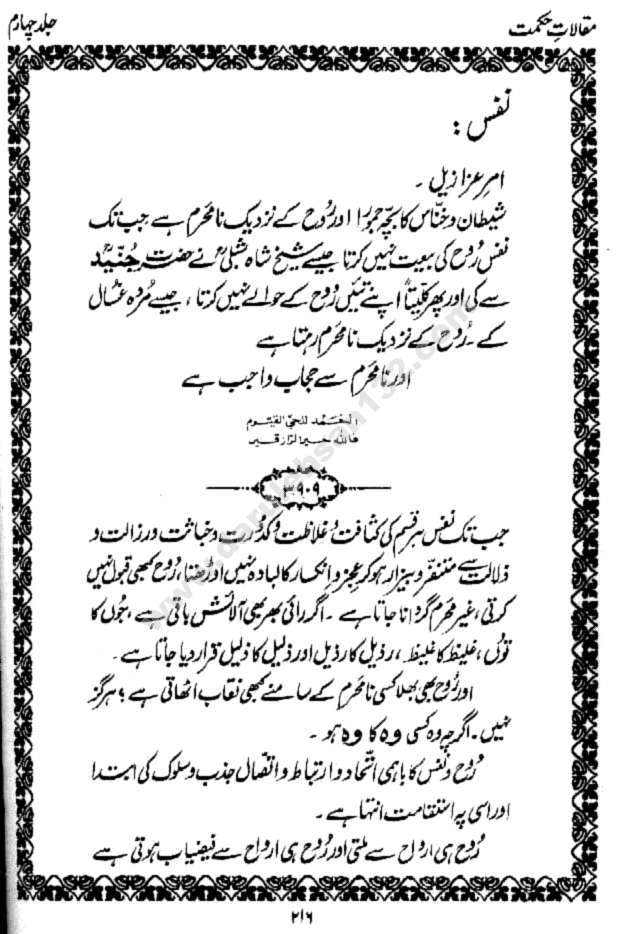 مقالاتِ حکمت
جلد چہارم
نفس :
امرِ عزازیل ۔
شیطان و خنّاس کا بچہ جمورا اور رُوح کے نزدیک نامحرَم ہے جب تک
نفس رُوح کی بیعت نہیں کرتا جیسے شیخ شاہ شبلیؒ نے حضرت جُنیدؒ
سے کی اور پھر کلیتاً اپنے تئیں رُوح کے حوالے نہیں کرتا ، جیسے مُردہ غسّال
کے ۔ رُوح کے نزدیک نامحرَم رہتا ہے
اور نامحرم سے حجاب واجب ہے
الحمد للحی القیوم
فاللہ خیر الرازقین
۳۹۰۹
جب تک نفس ہر قسم کی کثافت و غلاظت و کدُورت و خباثت و رزالت و
ذلالت سے متنفّر و بیزار ہو کر عجز و انکسار کا لبادہ نہیں اوڑھتا ، رُوح کبھی قبول نہیں
کرتی ، غیر محرم گردانا جاتا ہے ۔ اگر رائی بھر بھی آلائش باقی ہے ، جُوں کا
تُوں ، غلیظ کا غلیظ ، رذیل کا رذیل اور ذلیل کا ذلیل قرار دیا جاتا ہے ۔
اور رُوح بھی بھلا کسی نامحرم کے سامنے کبھی نقاب اٹھاتی ہے ؟ ہرگز
نہیں ۔ اگرچہ وہ کسی وہ کا وہ ہو ۔
رُوح و نفس کا باہمی اتّحاد و ارتباط و اتّصال جذب و سلوک کی ابتدا
اور اسی پہ استقامت انتہا ہے ۔
رُوح ہی ارواح سے ملتی اور رُوح ہی ارواح سے فیضیاب ہوتی ہے
۲۱۶
www.darulehsan132.com